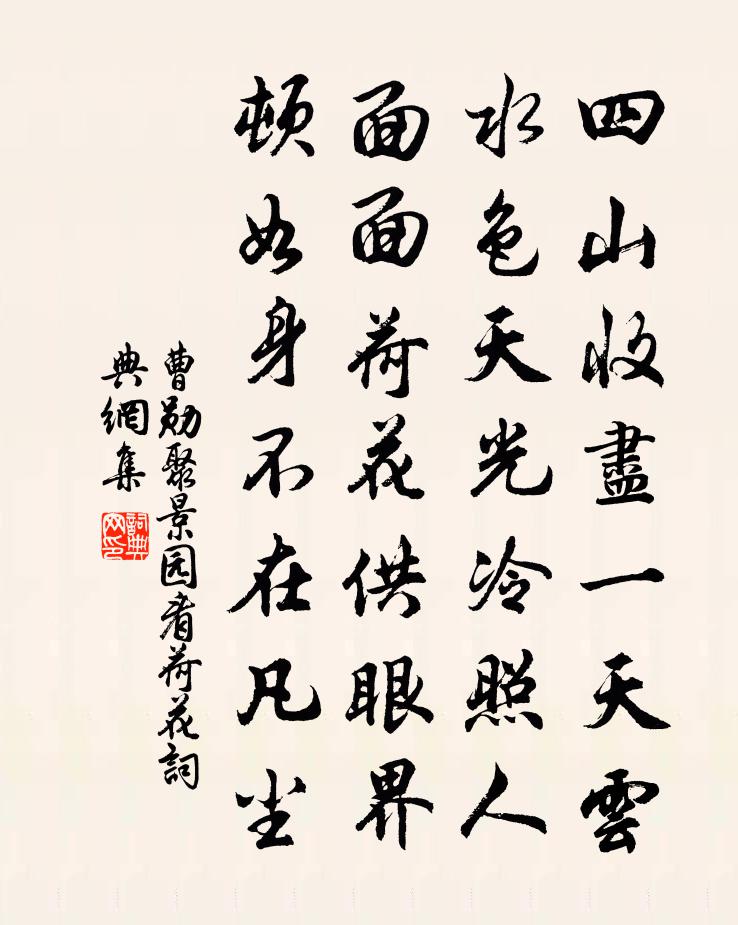 四山收盡一天雲
水色天光冷照人
面面荷花供眼界
頓如身不在凡尘
曹勛聚景园看荷花詞
典網集
詞典
网印